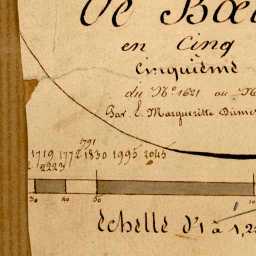 de Bœ
en Cinq
Cinquième
du Nº 1621 au N
Par L. Margueritte Dumes
1791
1719 1772 1830 1995 2045
2 2223
30 40 50 10
Echelle d'1 à 1,2